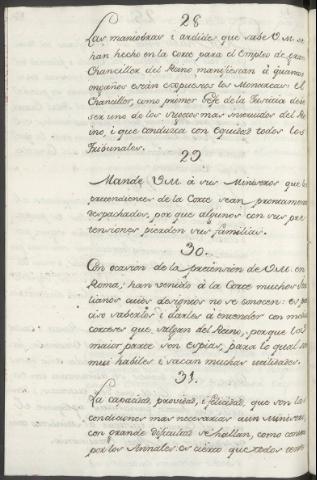 28
Las maniobras i ardides que sabe V.M. se
han hecho en la Corte para el Empleo de gran
Chanciller del Reino manifiestan à quantos
engaños están expuestos los Monarcas: el
Chanciller, como primer Gefe de la Justicia deve
ser uno de los sugetos mas instruidos del Re
ino, i que conduzca con equidad todos los
Tribunales.
29
Mande V.M. à sus Ministros que los
pretendientes de la Corte sean prontamente
despachados, por que algunos con sus pre
tensiones pierden sus familias.
30.
Con ocasion de la pretension de V.M. en
Roma, han venido à la Corte muchos Ita
lianos cuios designios no se conocen: es pre
ciso saberlos i darles à entender con modo
cortes que salgan del Reino, porque los
maior parte son espias, para lo qual son
mui habiles i sacan muchas utilidades.
31.
La capacidad, providad, i felicidad, que son las
condiciones mas necesarias à un Ministro,
con grande dificultad se hallan, como consta
por los Annales: es cierto que todos